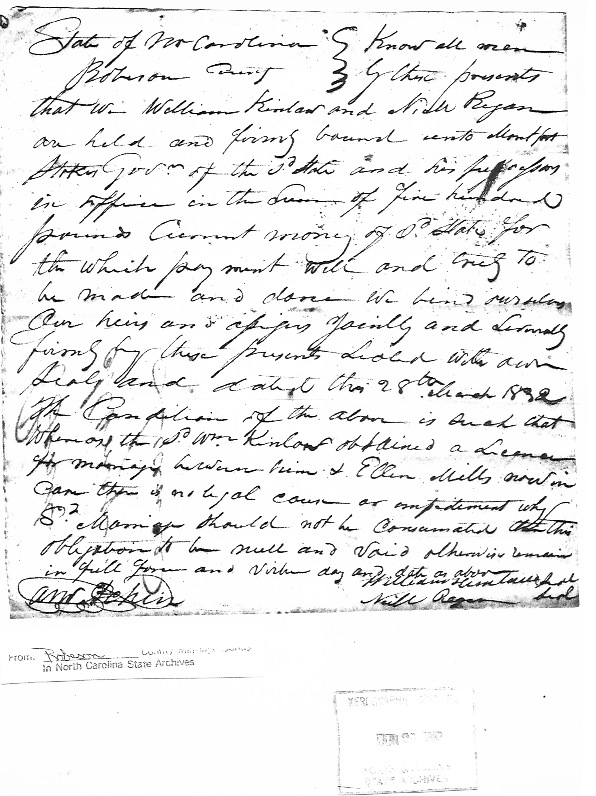 State of No Carolina } Know all men
Robeson County } by these presents
that We William Kinlaw and Niell Regan
are held and firmly bound unto Montfort
Stokes Govr. of the Sd State and his successors
in office in the Sum of five hundred
pounds Current money of Sd State for
the which payment well and truly to
be made and done We bind ourselves
Our heirs and assigns Jointly and Severally
firmly by these presents Sealed with our
Seals and dated this 28th March 1832
The Condition of the above is such that
Whereas the Sd Wm Kinlaw obtained a Licence
for marriage between him & Ellen Mills now in
Case there is no legal cause or impediment why
Sd Marriage should not be Consumated then this
obligation to be null and void otherwise remain
in full force and virtue day and date as above
William Kinlaw Seal
Niell Regan Seal
From: Robeson County Marriage Bonds
in North Carolina State Archives
STATE ARCHIVES